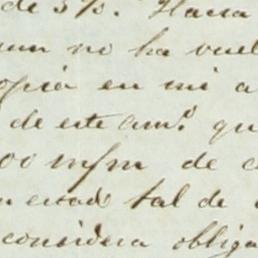 de 5%. Hasta
no ha vuel
copia en mi a
de este Cam.º qu
00 mfm de c
estado tal de
considera obliga